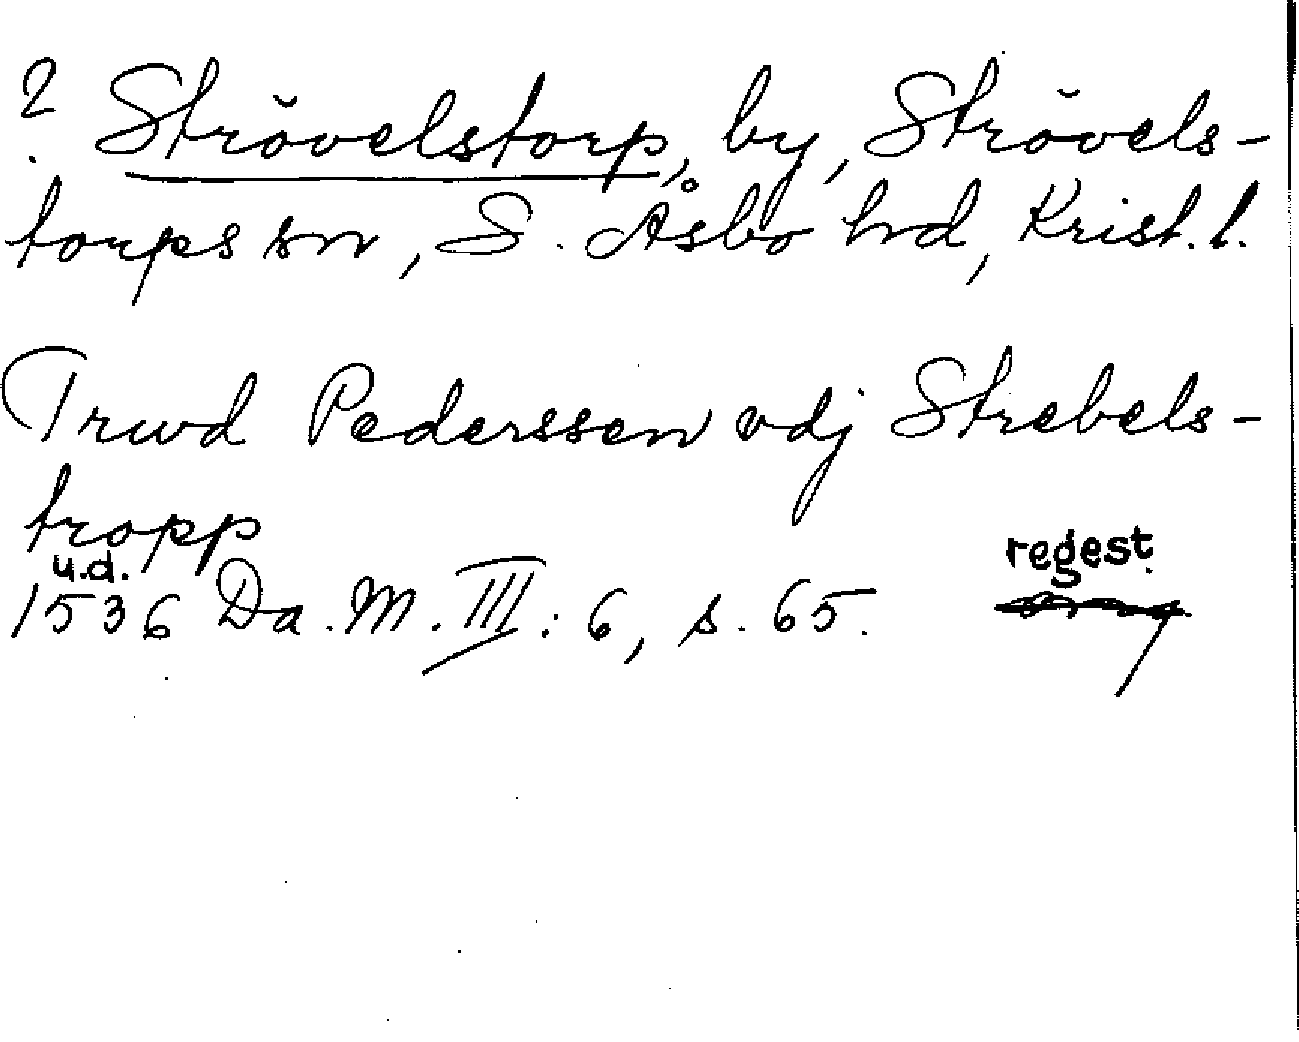 ? Strövelstorp, by, Strövels-
torps sn, S. Åsbo hd, Krist. l.
Trwd Pederssen vdj Strebels-
tropp
u.d. regest.
1536 Da. M. III: 6, s. 65.